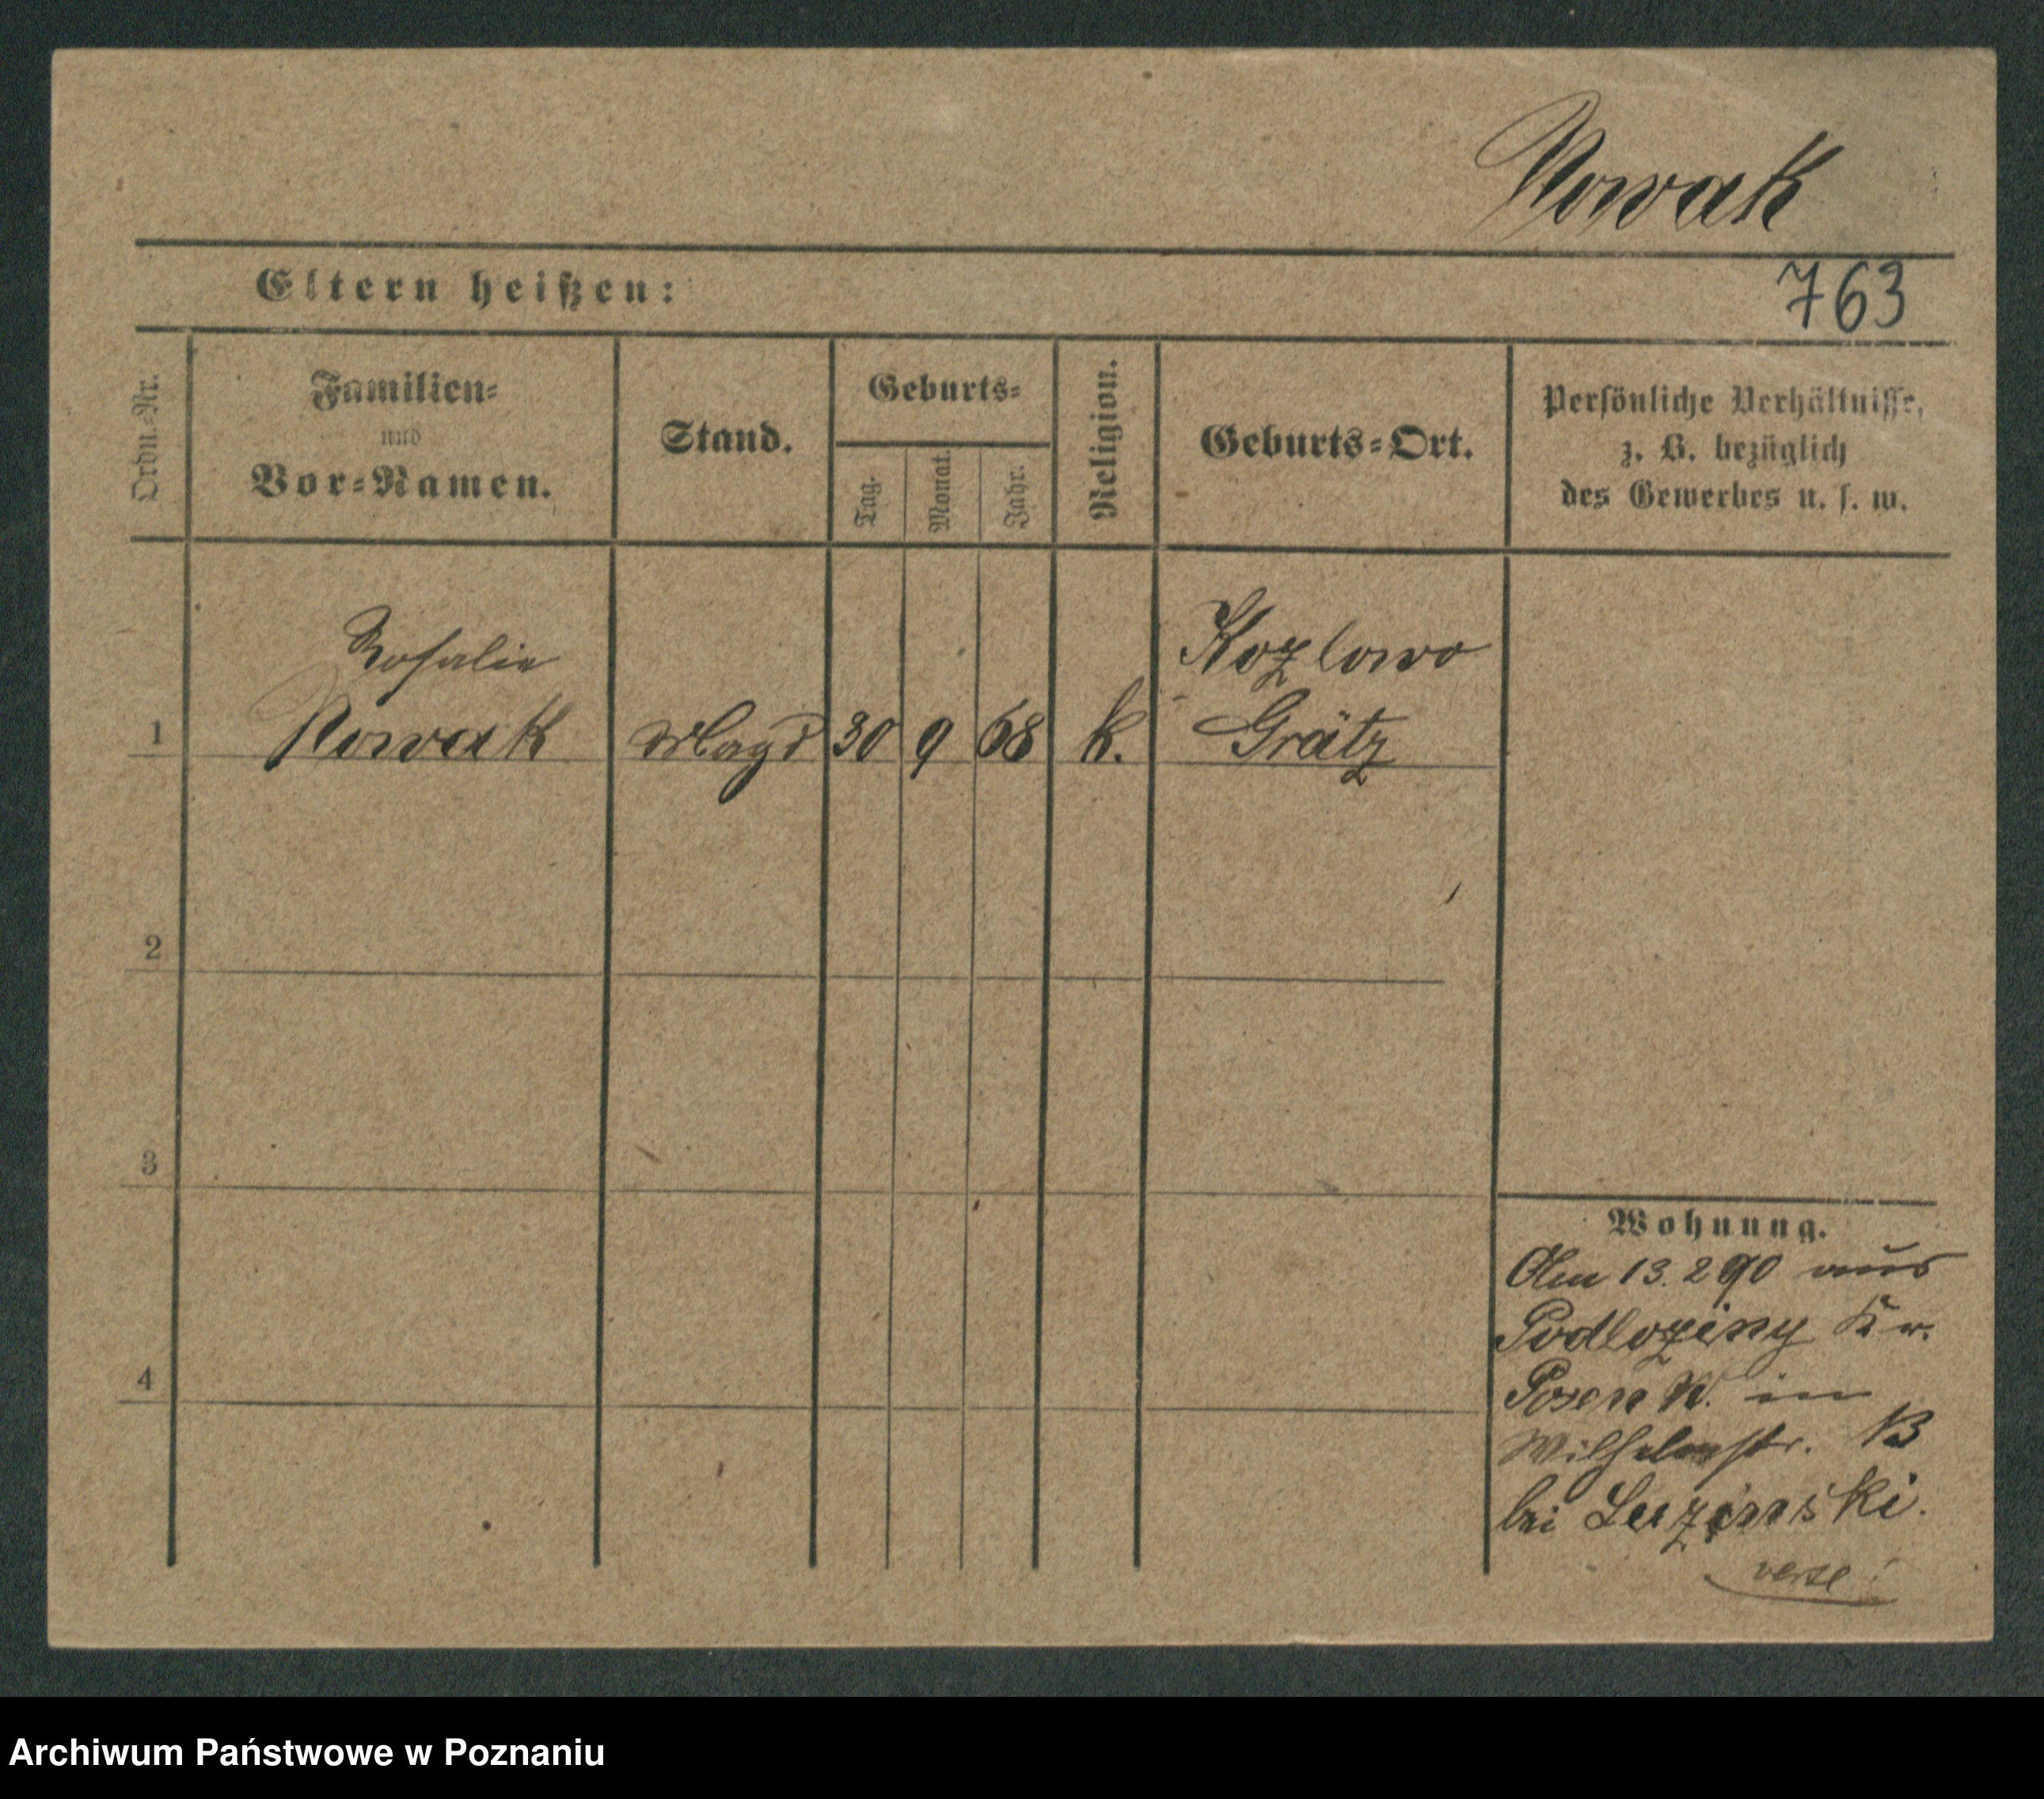 Nowak
Eltern heißen:
763
Ordn.-Nr.
Familien-
und
Vor-Namen.
Stand.
Geburts-
Tag.
Monat.
Jahr.
Religion.
Geburts-Ort.
Persönliche Verhältnisse,
z. B. bezüglich
des Gewerbes u. s. w.
Rosalie
Kozlowo
1 Nowak Magd 30 9 68 k. Grätz
2
3
4
Wohnung.
Am 13.2 90 aus
Podloziny Kr.
Posen W. in
Wilhelmstr. 13
bei